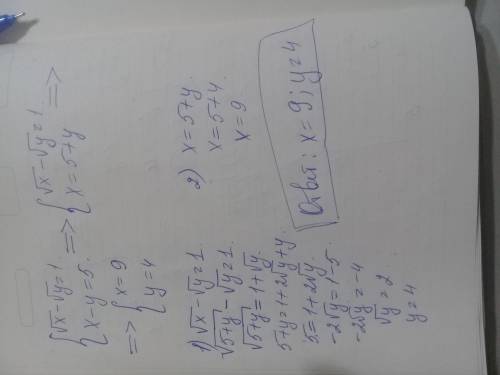 {√x-√y=1 => {√x-√y=1 =>
{x-y=5. {x=5+y
=> {x=9
{y=4
1) √x-√y=1.
√5+y-√y=1.
√5+y=1+√y.
5+y=1+2√y+y.
5=1+2√y.
-2√y=1-5.
-2√y=-4
√y=2
y=4
2) x=5+y.
x=5+4.
x=9
Ответ: x=9; y=4